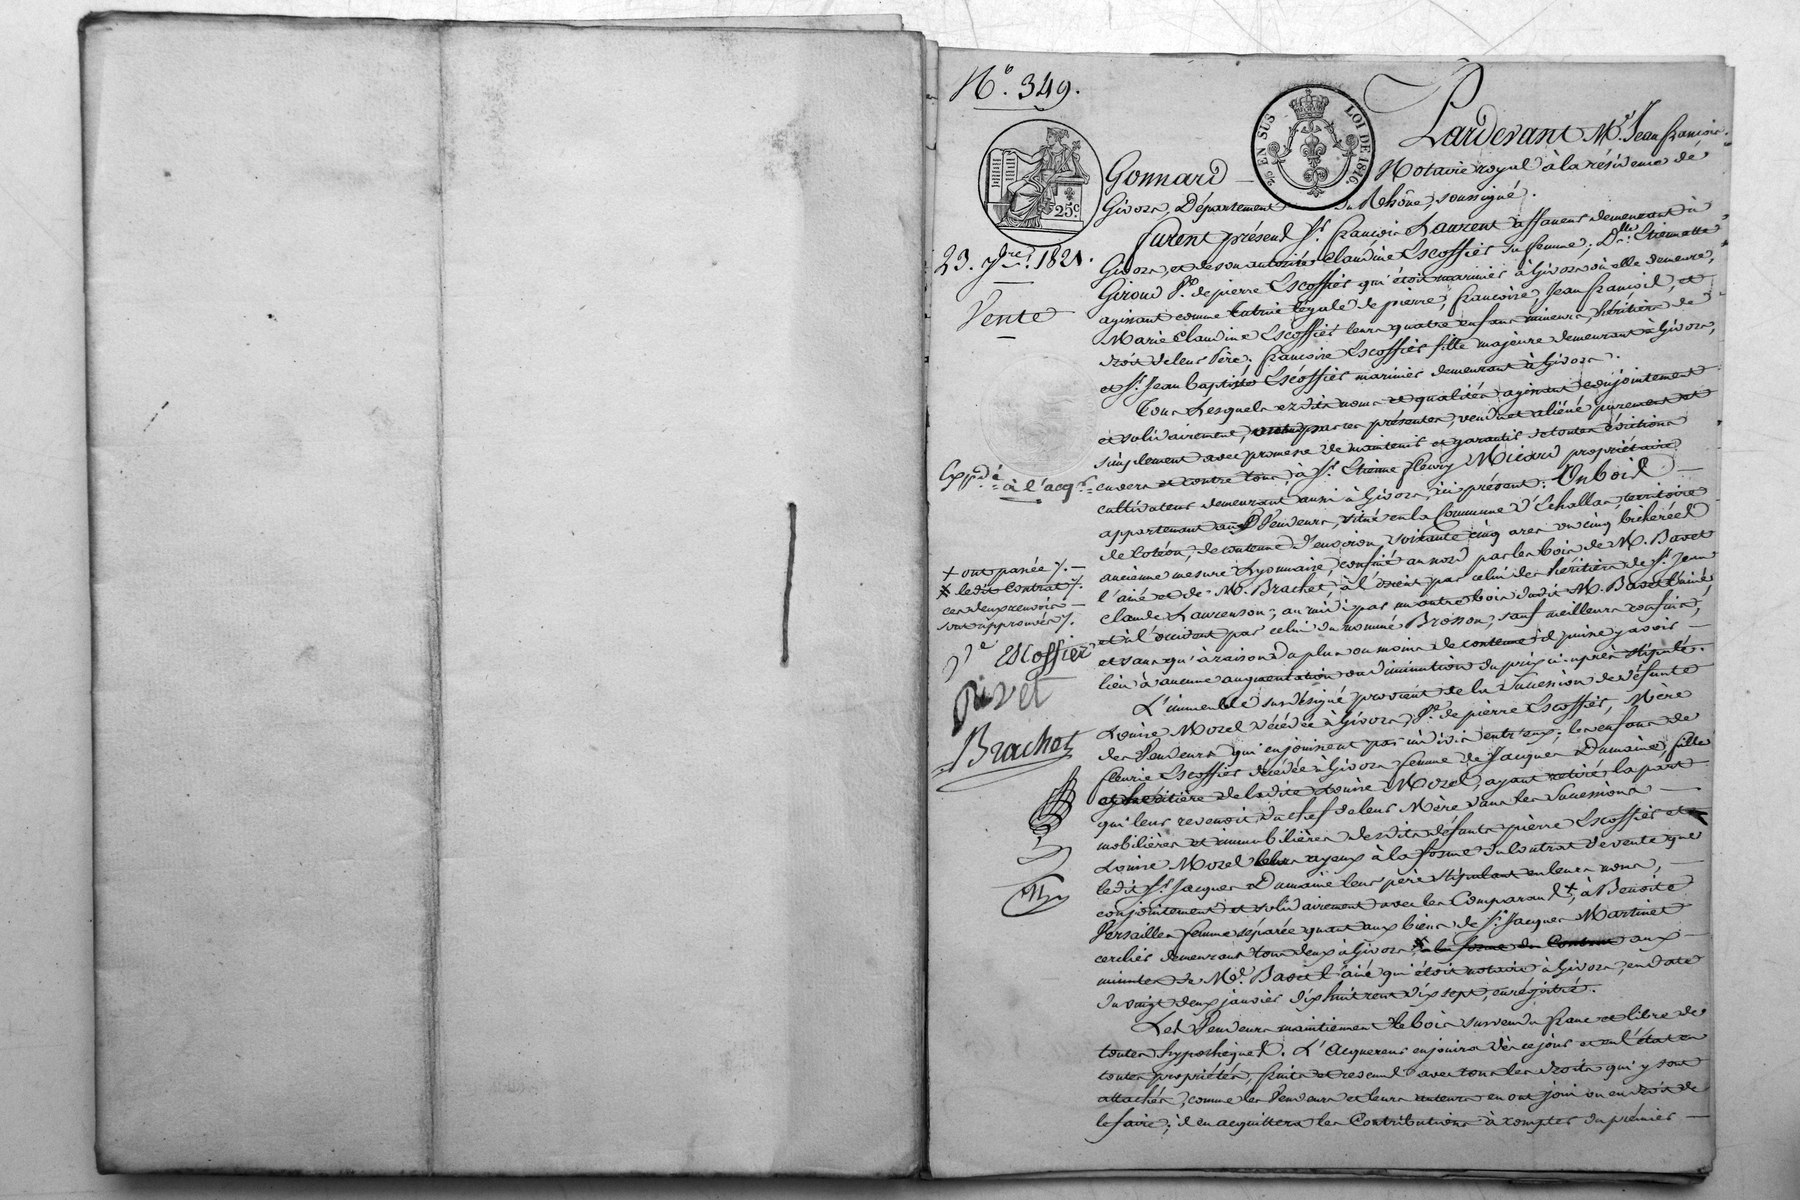 N.º 349.
25 EN SUS
LOI DE 1816
25c
23. 7bre. 1821.
Vente
Expédié
à l'acqr.
+ ont passée /.
x ledit Contrat /.
ces deux renvois
sont approuvés /.
Escoffier
Pivet
Brachet
Pardevant Me. Jean françois
Gonnard Notaire royal à la résidence de
Givors, Département du Rhône, soussigné.
Furent présend Sr. françois Laurent affaneur demeurant à
Givors, et de son autorité Claudine Escoffier sa femme; Dlle. Etiennette
Giroud Ve. de pierre Escoffier qui étoit marinier à Givors où elle demeure,
agissant comme tutrice légale de pierre, françoise, Jean françois, et
Marie Claudine Escoffier leurs quatre enfans mineurs, héritiers de
droit de leur Père; françoise Escoffier fille majeure demeurant à Givors,
et Sr. Jean baptiste Escoffier marinier demeurant à Givors.
Tous Lesquels ezdits noms et qualités agissant conjointement
et solidairement, par ces présentes, vendu et aliéné purement et
simplement avec promesse de maintenir et garantir de toutes évictions
envers et contre tous, à Sr. Etienne fleury Micard propriétaire
cultivateur demeurant aussi à Givors, ici présent: Un bois
appartenant aux Vendeurs, situé en la Commune d'Echallas, territoire
de Cotéon, de contenue d'environ soixante cinq ares ou cinq bicherées
ancienne mesure Lyonnaise, confiné au nord par les bois de M. Bavet
l'ainé et de M. Brachet, à l'orient par celui des héritiers de Sr. Jean
Claude Laurenson; au midi par un autre bois dudit M. Bavet l'ainé
et à l'occident par celui du nommé Brosson, sauf meilleurs confins,
et sans qu'à raison du plus ou moins de contenue il puisse y avoir
lieu à aucune augmentation ou diminution du prix ci-après stipulé.
L'immeuble susdésigné provient de la Succession de défunte
Louise Morel décédée à Givors, Ve. de pierre Escoffier, Mère
des Vendeurs qui en jouissent par indivis entr'eux; les enfans de
fleurie Escoffier décédée à Givors femme de Jacques Dumaine, fille
et héritière de ladite Louise Morel, ayant retiré la part
qui leur revenoit du chef de leur Mère dans les Successions
mobilières et immobilières desdits défunts pierre Escoffier et
Louise Morel leurs ayeux à la forme du Contrat de vente que
ledit Sr. Jacques Dumaine leur père stipulant en leurs noms,
conjointement et solidairement avec les Comparans +, à Benoite
Versailles femme séparée quant aux biens de Sr. Jacques Martinet
cerclier demeurant tous deux à Givors, x à la forme du Contrat aux
minutes de Me. Bavet l'ainé qui étoit notaire à Givors, en date
du vingt deux janvier dix huit cent dix sept, enregistré.
Les Vendeurs maintiennent le bois survendu franc et libre de
toutes hypothèques. L'acquereur en jouira dès ce jour et en l'état en
toutes propriétés, fruits et revenus avec tous les droits qui y sont
attachés, comme les Vendeurs et leurs auteurs en ont joui ou eu droit de
le faire; il en acquittera les Contributions à compter du premier